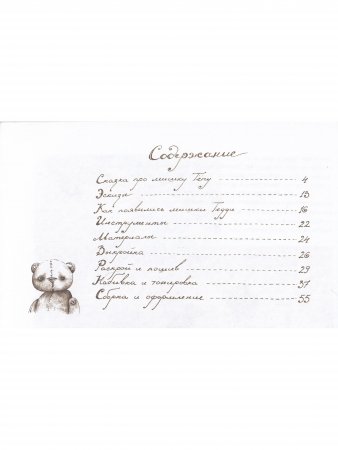 Содержание
Сказка про мишку Тепу 4
Эскизы 13
Как появились мишки Тедди 16
Инструменты 22
Материалы 24
Выкройка 26
Раскрой и пошив 29
Набивка и тонировка 37
Сборка и оформление 55